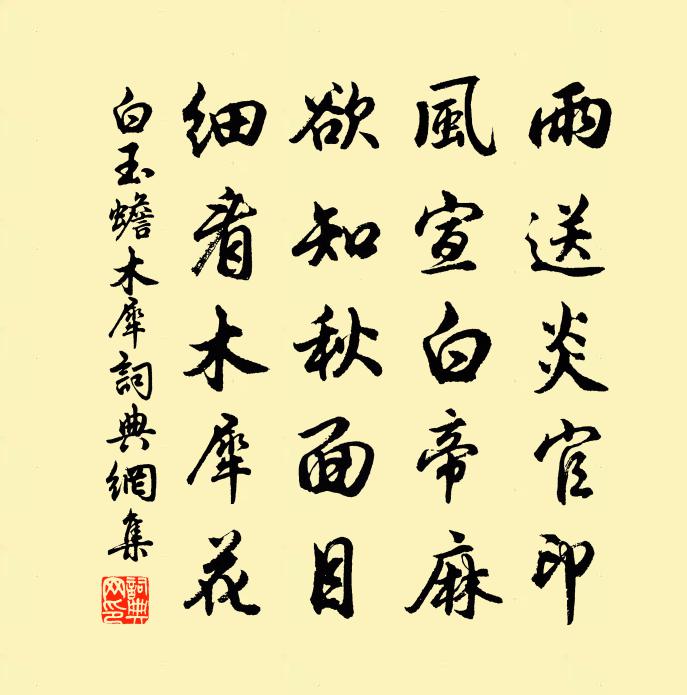 雨送炎官印
風宣白帝麻
欲知秋面目
細看木犀花
白玉蟾木犀詞典網集
詞典網印